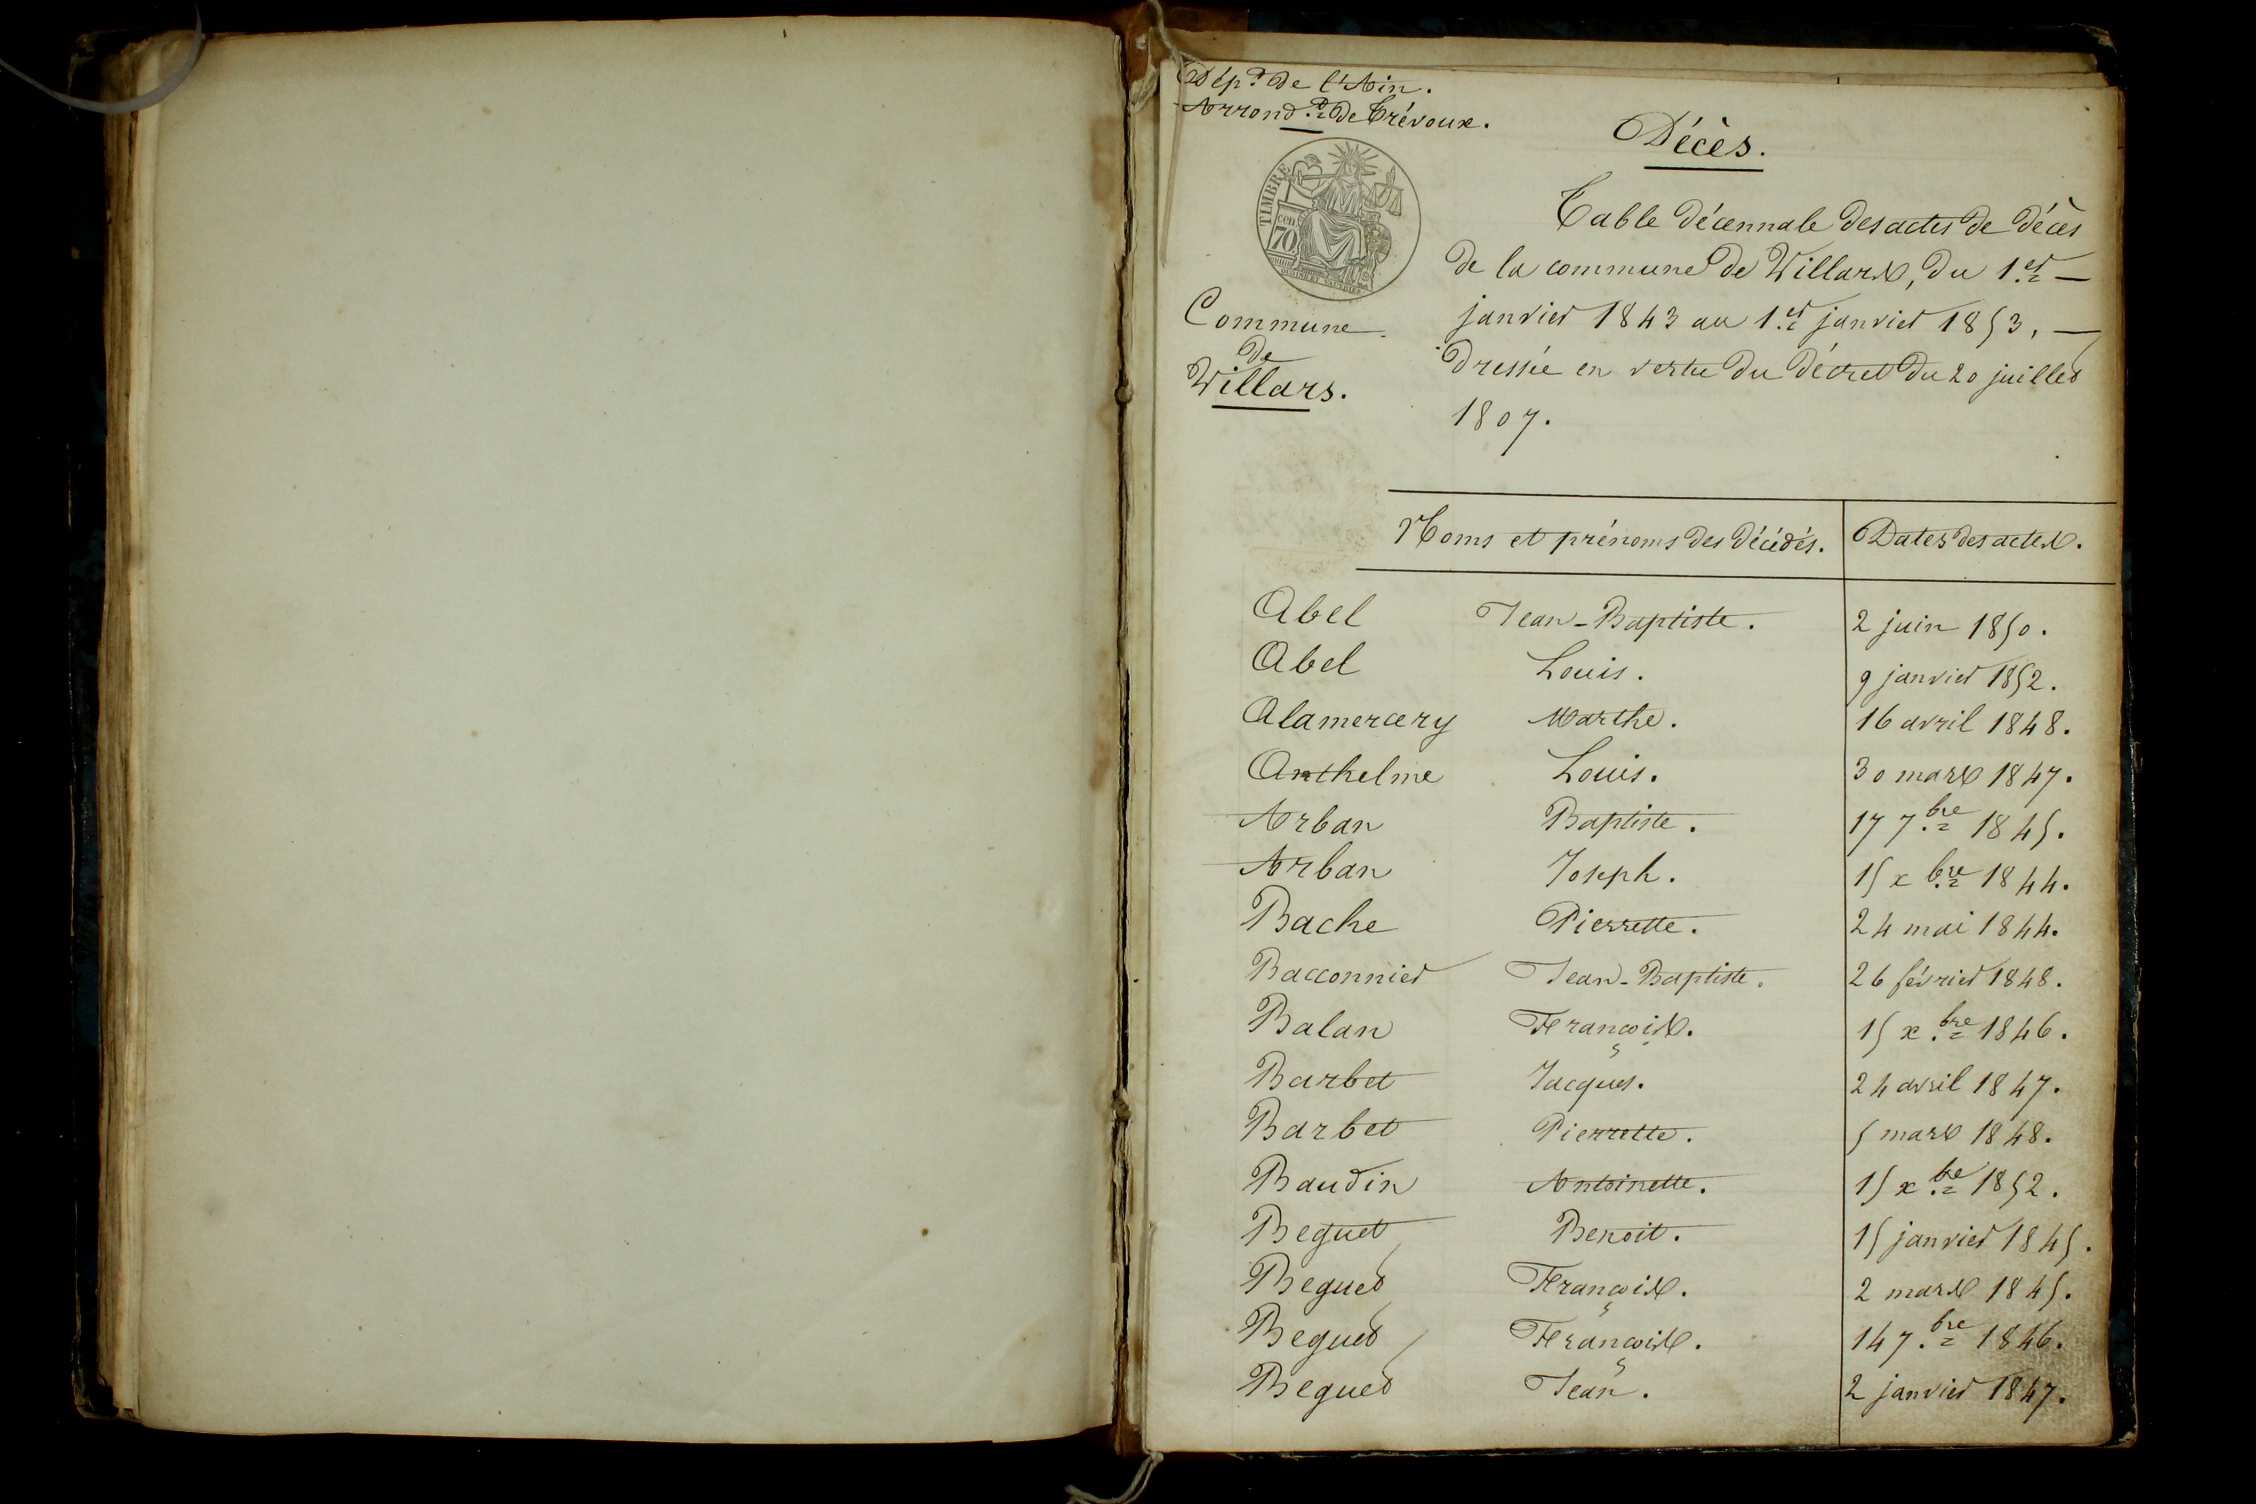 Dép.t de l'Ain.
Arrond.t de Trévoux.
Décès.
TIMBRE
cen
70
Table décennale des actes de décès
de la commune de Villars, du 1.er —
janvier 1843 au 1.er janvier 1853, —
dressée en vertu du décret du 20 juillet
1807.
Commune
de
Villars.
Noms et prénoms des décédés. Dates des actes.
Abel Jean-Baptiste. 2 juin 1850.
Abel Louis. 9 janvier 1852.
Alamercery Marthe. 16 avril 1848.
Anthelme Louis. 30 mars 1847.
Arban Baptiste. 17 7.bre 1845.
Arban Joseph. 15 x bre 1844.
Bache Pierrette. 24 mai 1844.
Bacconnier Jean-Baptiste. 26 février 1848.
Balan François. 15 x.bre 1846.
Barbet Jacques. 24 avril 1847.
Barbet Pierrette. 5 mars 1848.
Baudin Antoinette. 15 x.bre 1852.
Beguet Benoit. 15 janvier 1845.
Beguet François. 2 mars 1845.
Beguet François. 14 7.bre 1846.
Beguet Jean. 2 janvier 1847.